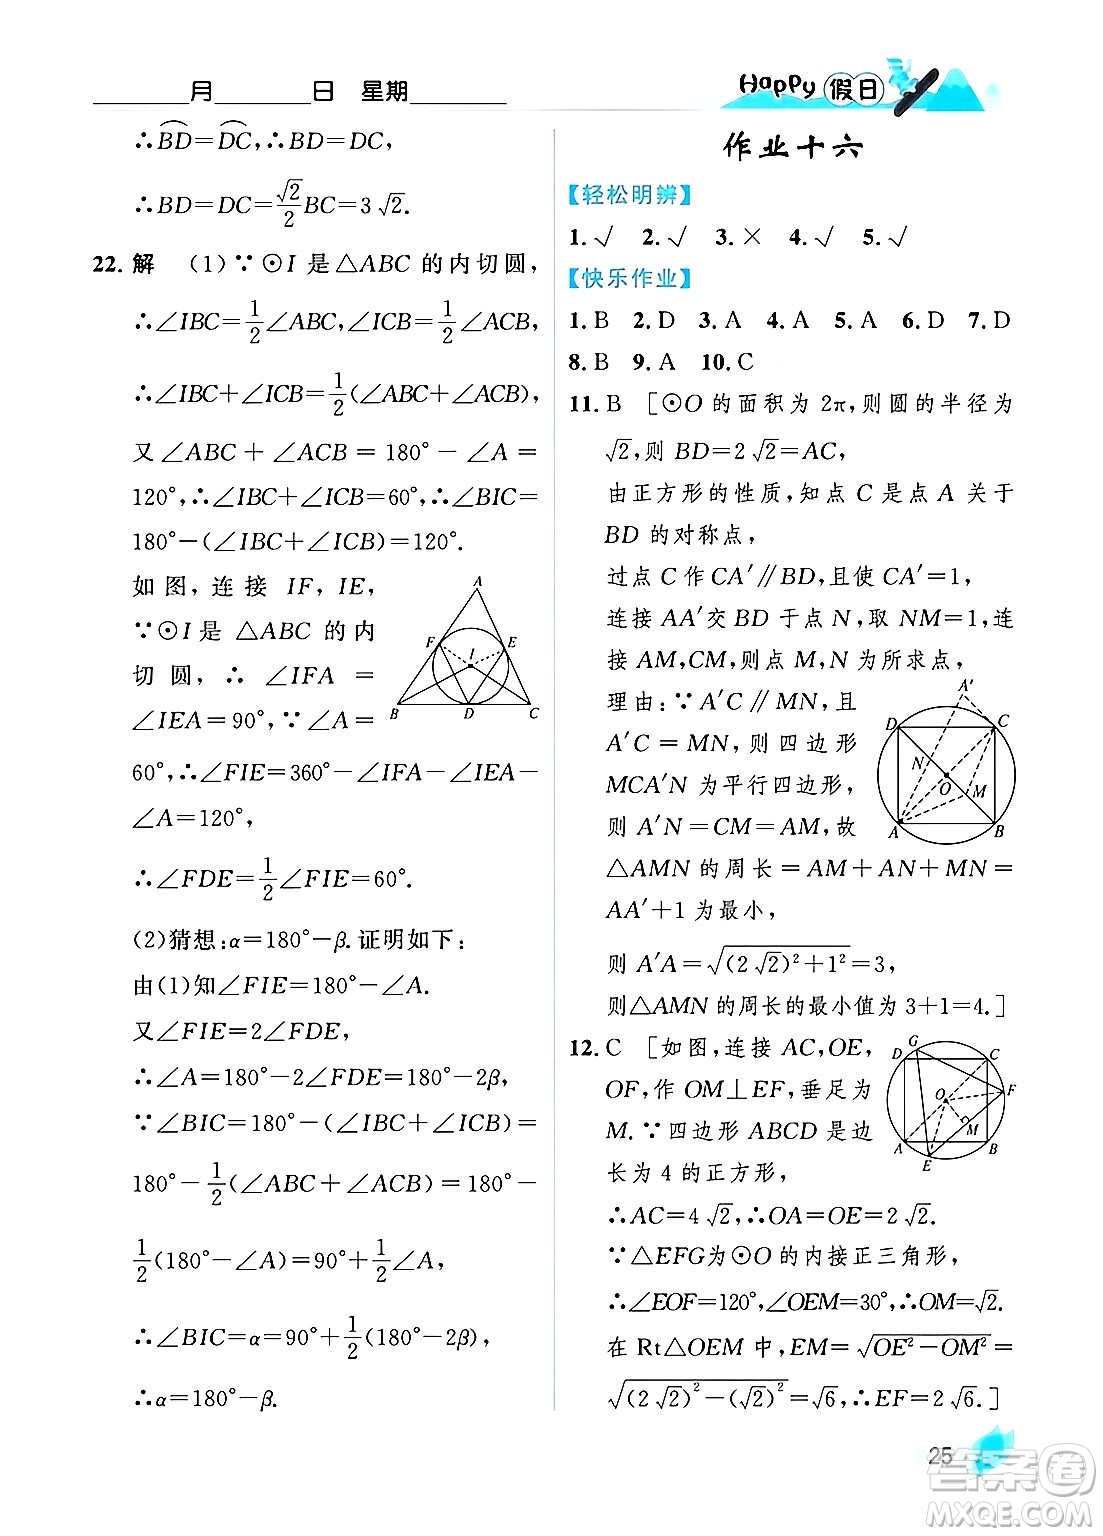 ______月______日 星期______
Happy 假日
∴BD⌢=DC⌢,∴BD=DC,
∴BD=DC=√2/2 BC=3√2.
22. 解 (1)∵⊙I 是△ABC 的内切圆,
∴∠IBC=1/2∠ABC,∠ICB=1/2∠ACB,
∴∠IBC+∠ICB=1/2(∠ABC+∠ACB),
又∠ABC+∠ACB=180°-∠A=
120°,∴∠IBC+∠ICB=60°,∴∠BIC=
180°-(∠IBC+∠ICB)=120°.
如图,连接 IF, IE,
∵⊙I 是 △ABC 的内
切圆,∴ ∠IFA =
∠IEA=90°,∵∠A=
60°,∴∠FIE=360°-∠IFA-∠IEA-
∠A=120°,
∴∠FDE=1/2∠FIE=60°.
(2)猜想:α=180°-β.证明如下:
由(1)知∠FIE=180°-∠A.
又∠FIE=2∠FDE,
∴∠A=180°-2∠FDE=180°-2β,
∵∠BIC=180°-(∠IBC+∠ICB)=
180°-1/2(∠ABC+∠ACB)=180°-
1/2(180°-∠A)=90°+1/2∠A,
∴∠BIC=α=90°+1/2(180°-2β),
∴α=180°-β.
A
F
E
I
B
D
C
作业十六
【轻松明辨】
1.√ 2.√ 3.× 4.√ 5.√
【快乐作业】
1.B 2.D 3.A 4.A 5.A 6.D 7.D
8.B 9.A 10.C
11.B [⊙O 的面积为 2π,则圆的半径为
√2,则 BD=2√2=AC,
由正方形的性质,知点 C 是点 A 关于
BD 的对称点,
过点 C 作 CA′∥BD,且使 CA′=1,
连接 AA′交 BD 于点 N,取 NM=1,连
接 AM,CM,则点 M,N 为所求点,
理由:∵A′C∥MN,且
A′C=MN,则四边形
MCA′N 为平行四边形,
则 A′N=CM=AM,故
△AMN 的周长=AM+AN+MN=
AA′+1 为最小,
则 A′A=√((2√2)²+1²)=3,
则△AMN 的周长的最小值为 3+1=4.]
A′
D
C
N
O
M
A
B
12.C [如图,连接 AC,OE,
OF,作 OM⊥EF,垂足为
M.∵四边形 ABCD 是边
长为 4 的正方形,
∴AC=4√2,∴OA=OE=2√2.
∵△EFG为⊙O 的内接正三角形,
∴∠EOF=120°,∠OEM=30°,∴OM=√2.
在 Rt△OEM 中,EM=√(OE²-OM²)=
√((2√2)²-(√2)²)=√6,∴EF=2√6.]
G
D
C
O
F
M
A
B
E
25
答案圈
MXQE.COM